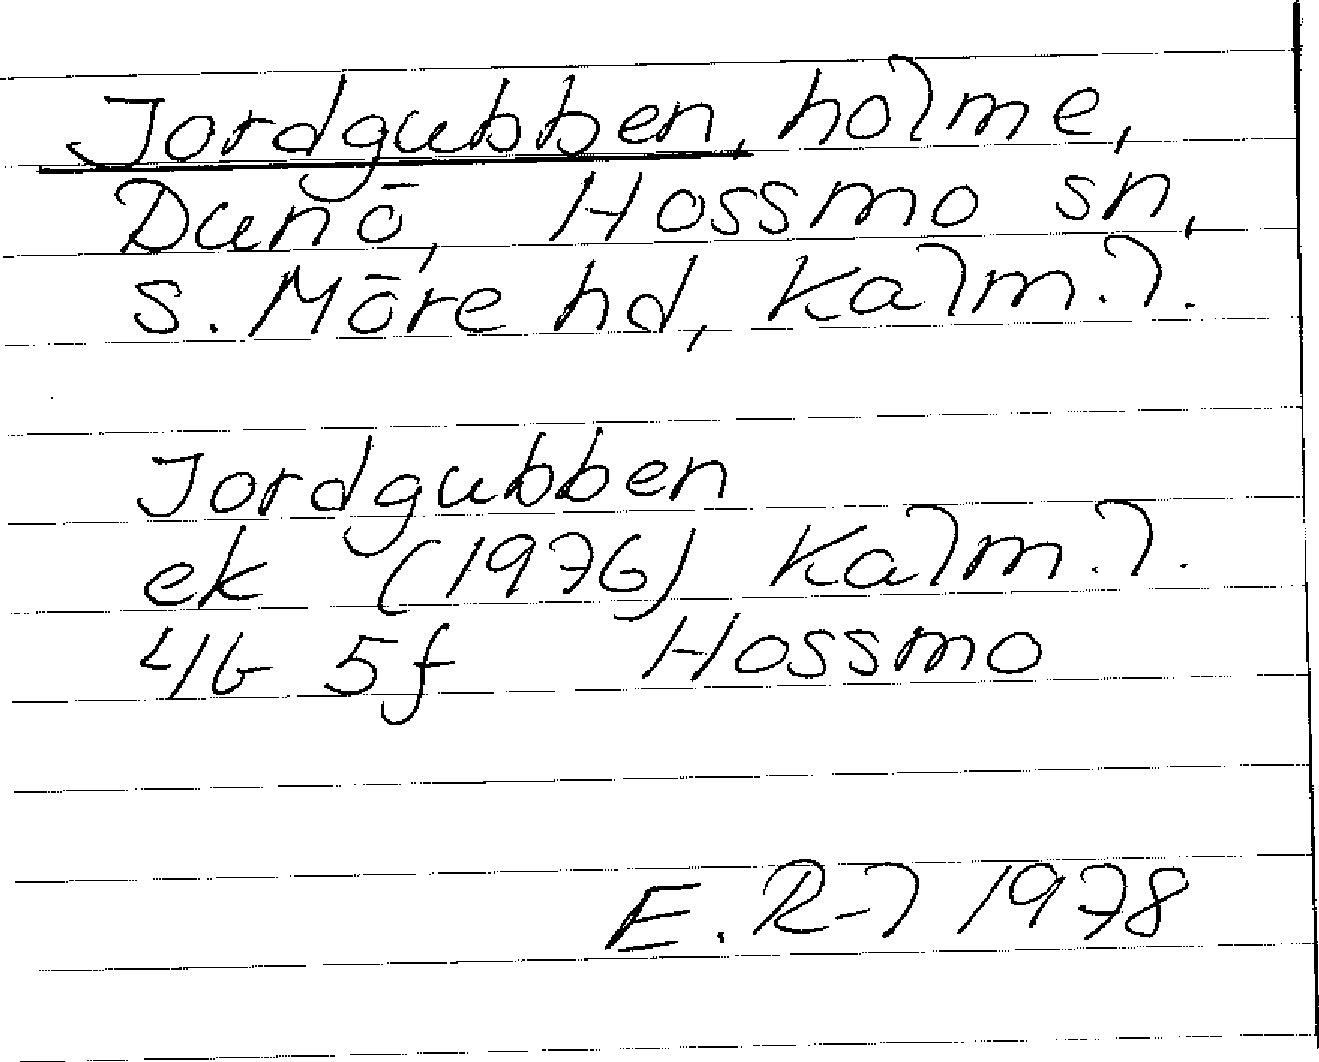 Jordgubben, holme,
Dunö, Hossmo sn,
S. Möre hd, Kalm. l.
Jordgubben
ek (1976) Kalm. l.
4G 5f Hossmo
E. R-l 1978